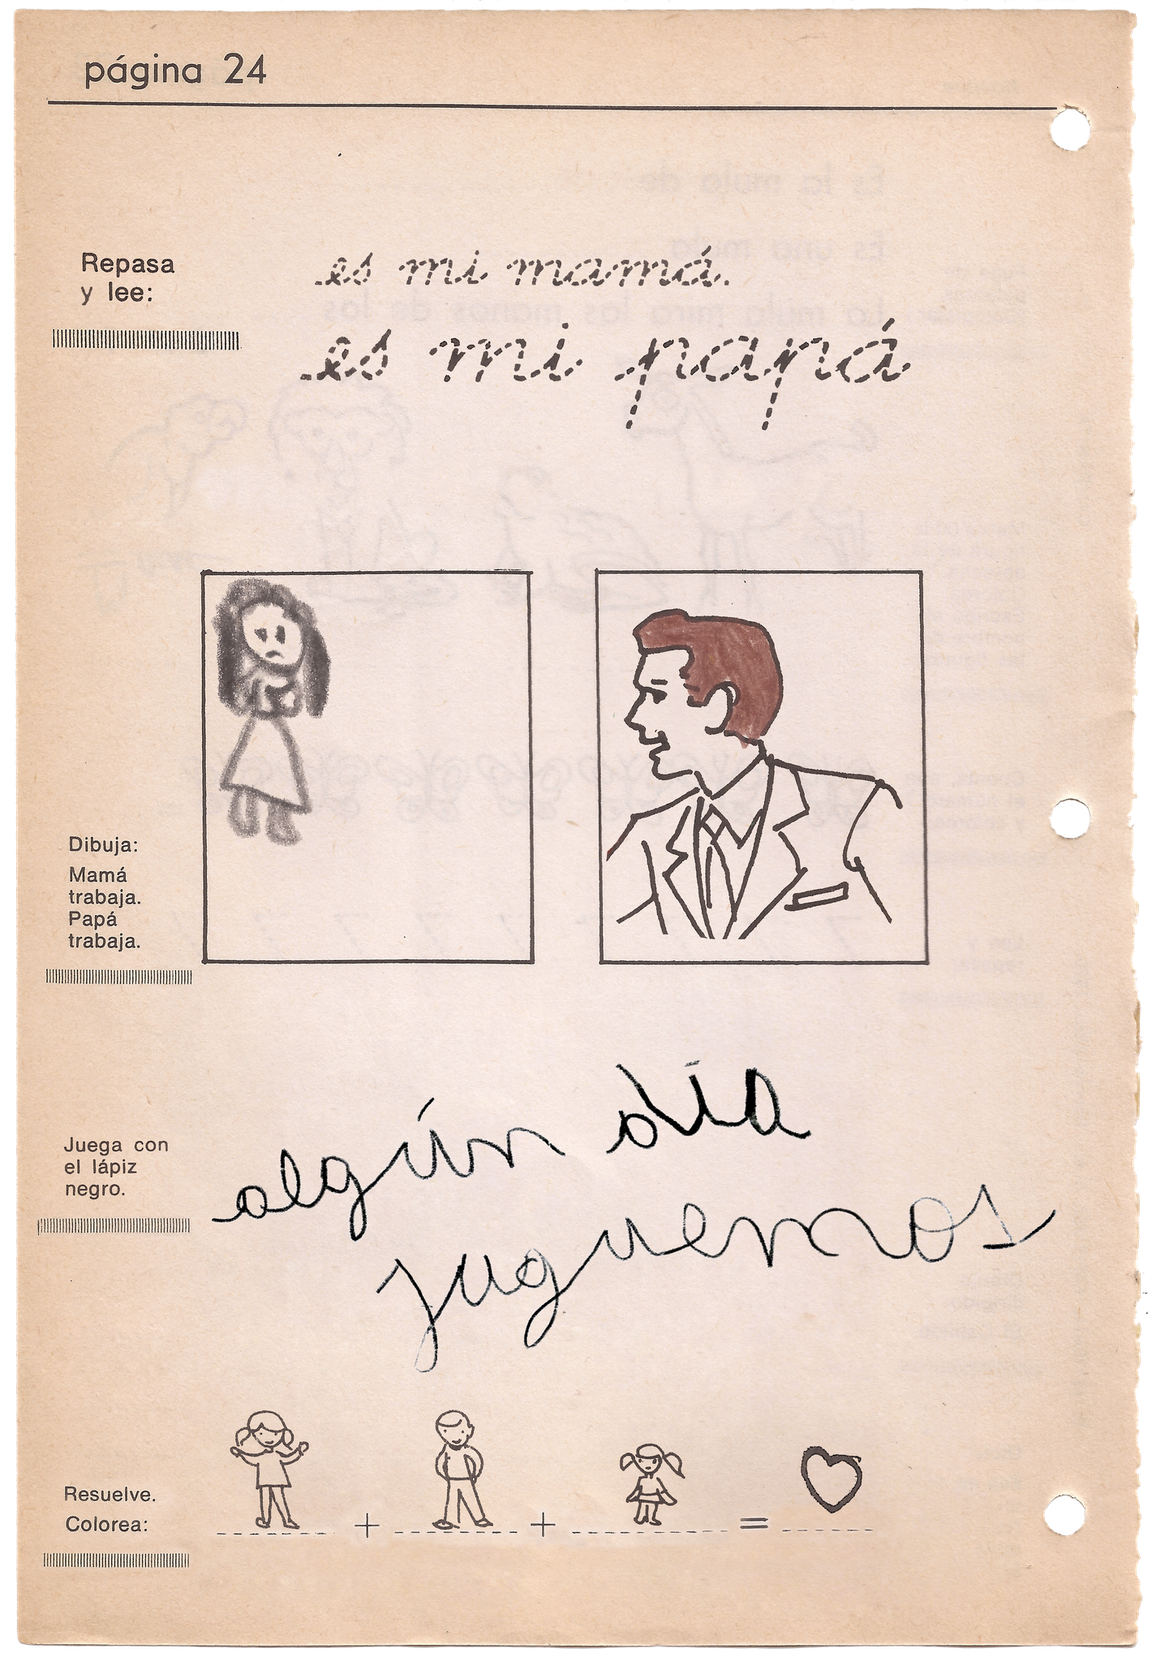 página 24
Repasa
y lee:
es mi mamá.
es mi papá
Dibuja:
Mamá
trabaja.
Papá
trabaja.
Juega con
el lápiz
negro.
algún día
juguemos
Resuelve.
Colorea:
+ + =